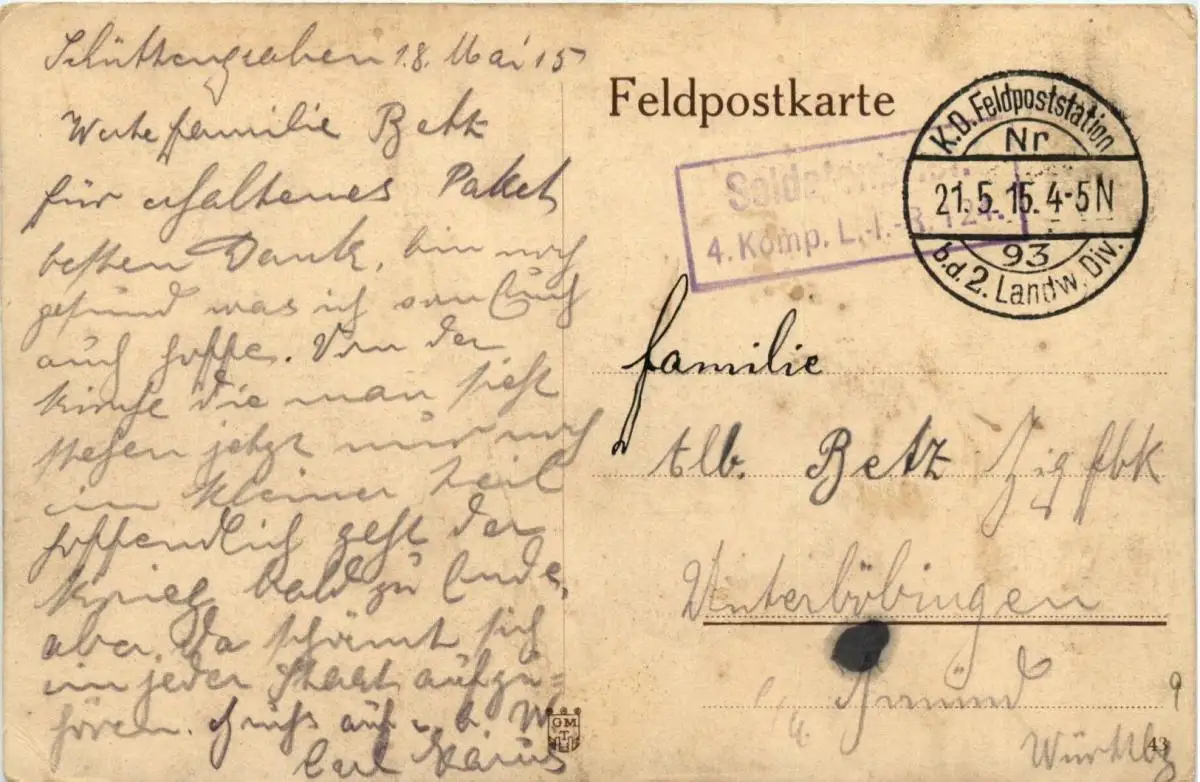 Schüttengraben 18. Mai 15
Werte Familie Betz
für erhaltenes Paket
besten Dank, bin noch
gesund was ich von Euch
auch hoffe. Von der
Kirche die man sieht
stehen jetzt nur noch
ein kleiner Teil
hoffendlich geht der
Krieg bald zu Ende,
aber da schämt sich
ein jeder Staat aufzu=
hören. Gruß auf
Carl
Feldpostkarte
4. Komp. L.-I.-R. 124.
K.D. Feldpoststation
Nr
21.5.15. 4-5N
93
b.d. 2. Landw. Div.
Familie
Alb. Betz Zigfbk
Unterböbingen
Gmünd
Württbg
GM
T
43